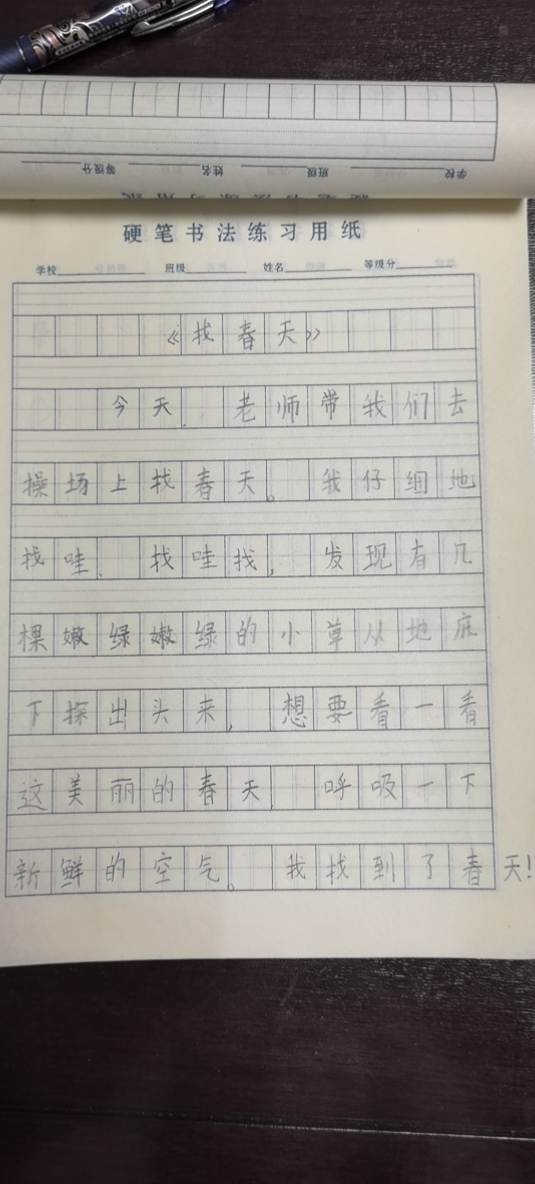 学校 班级 姓名 等级分
硬笔书法练习用纸
学校 班级 姓名 等级分
《找春天》
今天,老师带我们去
操场上找春天。我仔细地
找哇,找哇找,发现有几
棵嫩绿嫩绿的小草从地底
下探出头来,想要看一看
这美丽的春天,呼吸一下
新鲜的空气。我找到了春天!